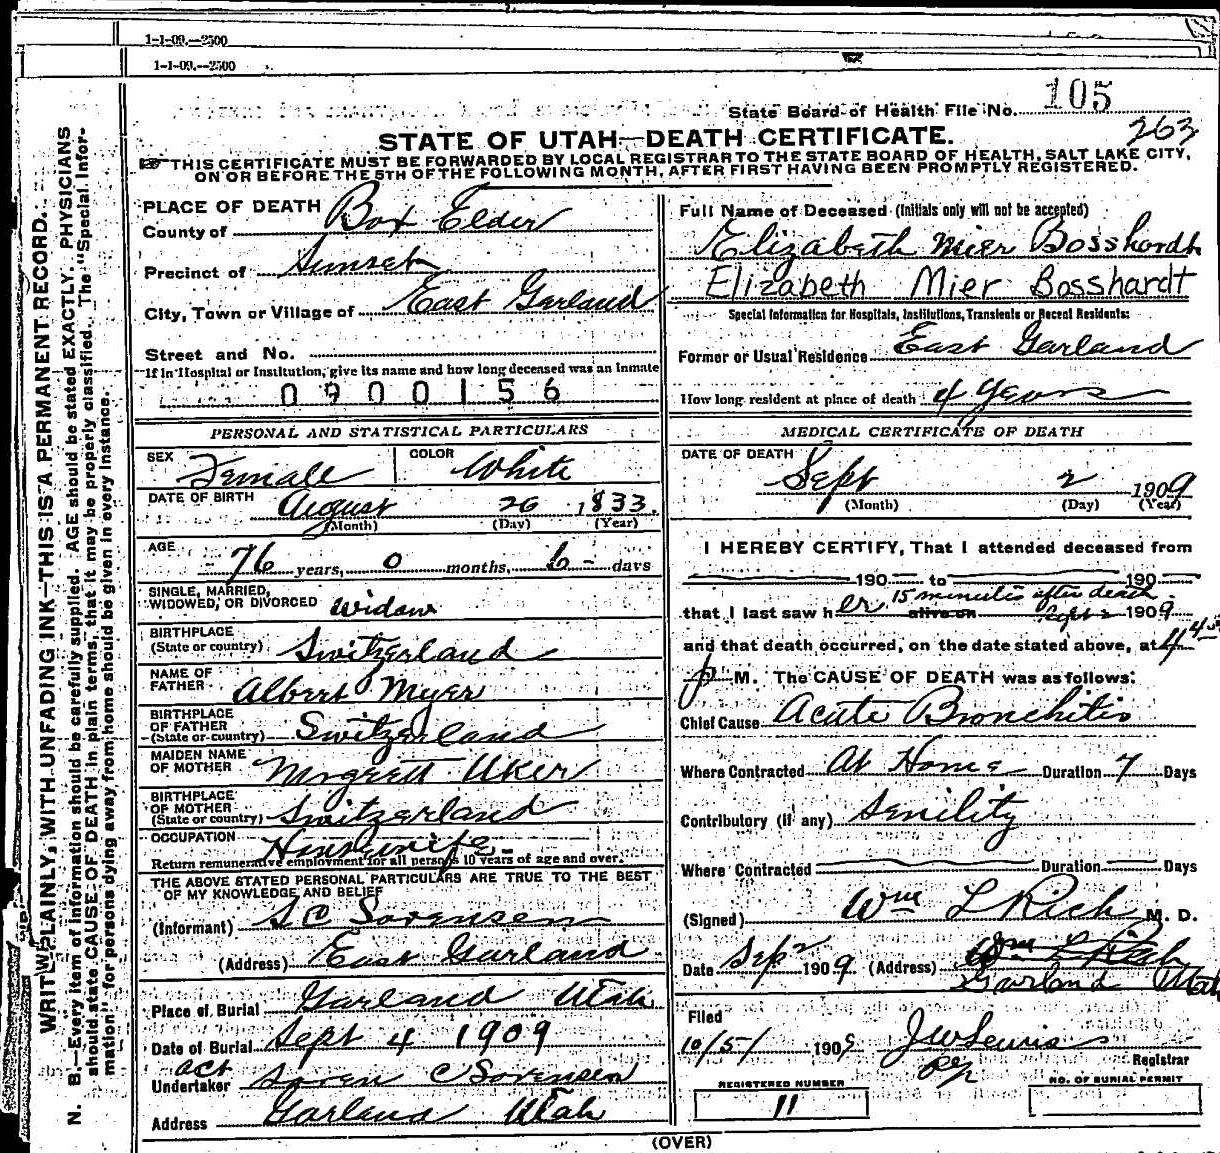 1-1-09.--2500
1-1-09.--2500
State Board of Health File No. 105
263
STATE OF UTAH—DEATH CERTIFICATE.
THIS CERTIFICATE MUST BE FORWARDED BY LOCAL REGISTRAR TO THE STATE BOARD OF HEALTH, SALT LAKE CITY,
ON OR BEFORE THE 5TH OF THE FOLLOWING MONTH, AFTER FIRST HAVING BEEN PROMPTLY REGISTERED.
WRITE PLAINLY, WITH UNFADING INK—THIS IS A PERMANENT RECORD.
N. B.—Every item of information should be carefully supplied. AGE should be stated EXACTLY. PHYSICIANS
should state CAUSE OF DEATH in plain terms, that it may be properly classified. The "Special Infor-
mation" for persons dying away from home should be given in every instance.
PLACE OF DEATH
County of Box Elder
Precinct of Sunset
City, Town or Village of East Garland
Street and No.
If in Hospital or Institution, give its name and how long deceased was an inmate
0900156
PERSONAL AND STATISTICAL PARTICULARS
SEX Female COLOR White
DATE OF BIRTH August 26 1833
(Month) (Day) (Year)
AGE 76 years, 0 months, 6 - days
SINGLE, MARRIED,
WIDOWED, OR DIVORCED Widow
BIRTHPLACE
(State or country) Switzerland
NAME OF
FATHER Albert Myer
BIRTHPLACE
OF FATHER
(State or country) Switzerland
MAIDEN NAME
OF MOTHER Margrett Uker
BIRTHPLACE
OF MOTHER
(State or country) Switzerland
OCCUPATION Housewife
Return remunerative employment for all persons 10 years of age and over.
THE ABOVE STATED PERSONAL PARTICULARS ARE TRUE TO THE BEST
OF MY KNOWLEDGE AND BELIEF
(Informant) S C Sorensen
(Address) East Garland
Place of Burial Garland Utah
Date of Burial Sept 4 1909
act
Undertaker Soren C Sorensen
Address Garland Utah
Full Name of Deceased (Initials only will not be accepted)
Elizabeth Mier Bosshardt
Elizabeth Mier Bosshardt
Special Information for Hospitals, Institutions, Transients or Recent Residents:
Former or Usual Residence East Garland
How long resident at place of death 4 years
MEDICAL CERTIFICATE OF DEATH
DATE OF DEATH
Sept 2 1909
(Month) (Day) (Year)
I HEREBY CERTIFY, That I attended deceased from
190 to 190
15 minutes after death
that I last saw her alive on Sept 2 1909
and that death occurred, on the date stated above, at 4 45
p M. The CAUSE OF DEATH was as follows:
Chief Cause Acute Bronchitis
Where Contracted At Home Duration 7 Days
Contributory (if any) Senility
Where Contracted Duration Days
(Signed) Wm L Rich M. D.
Date Sep 2 1909 (Address) Wm L Rich
Garland Utah
Filed
10/5/ 1909 J W Lewis
Registrar
REGISTERED NUMBER
11
NO. OF BURIAL PERMIT
(OVER)